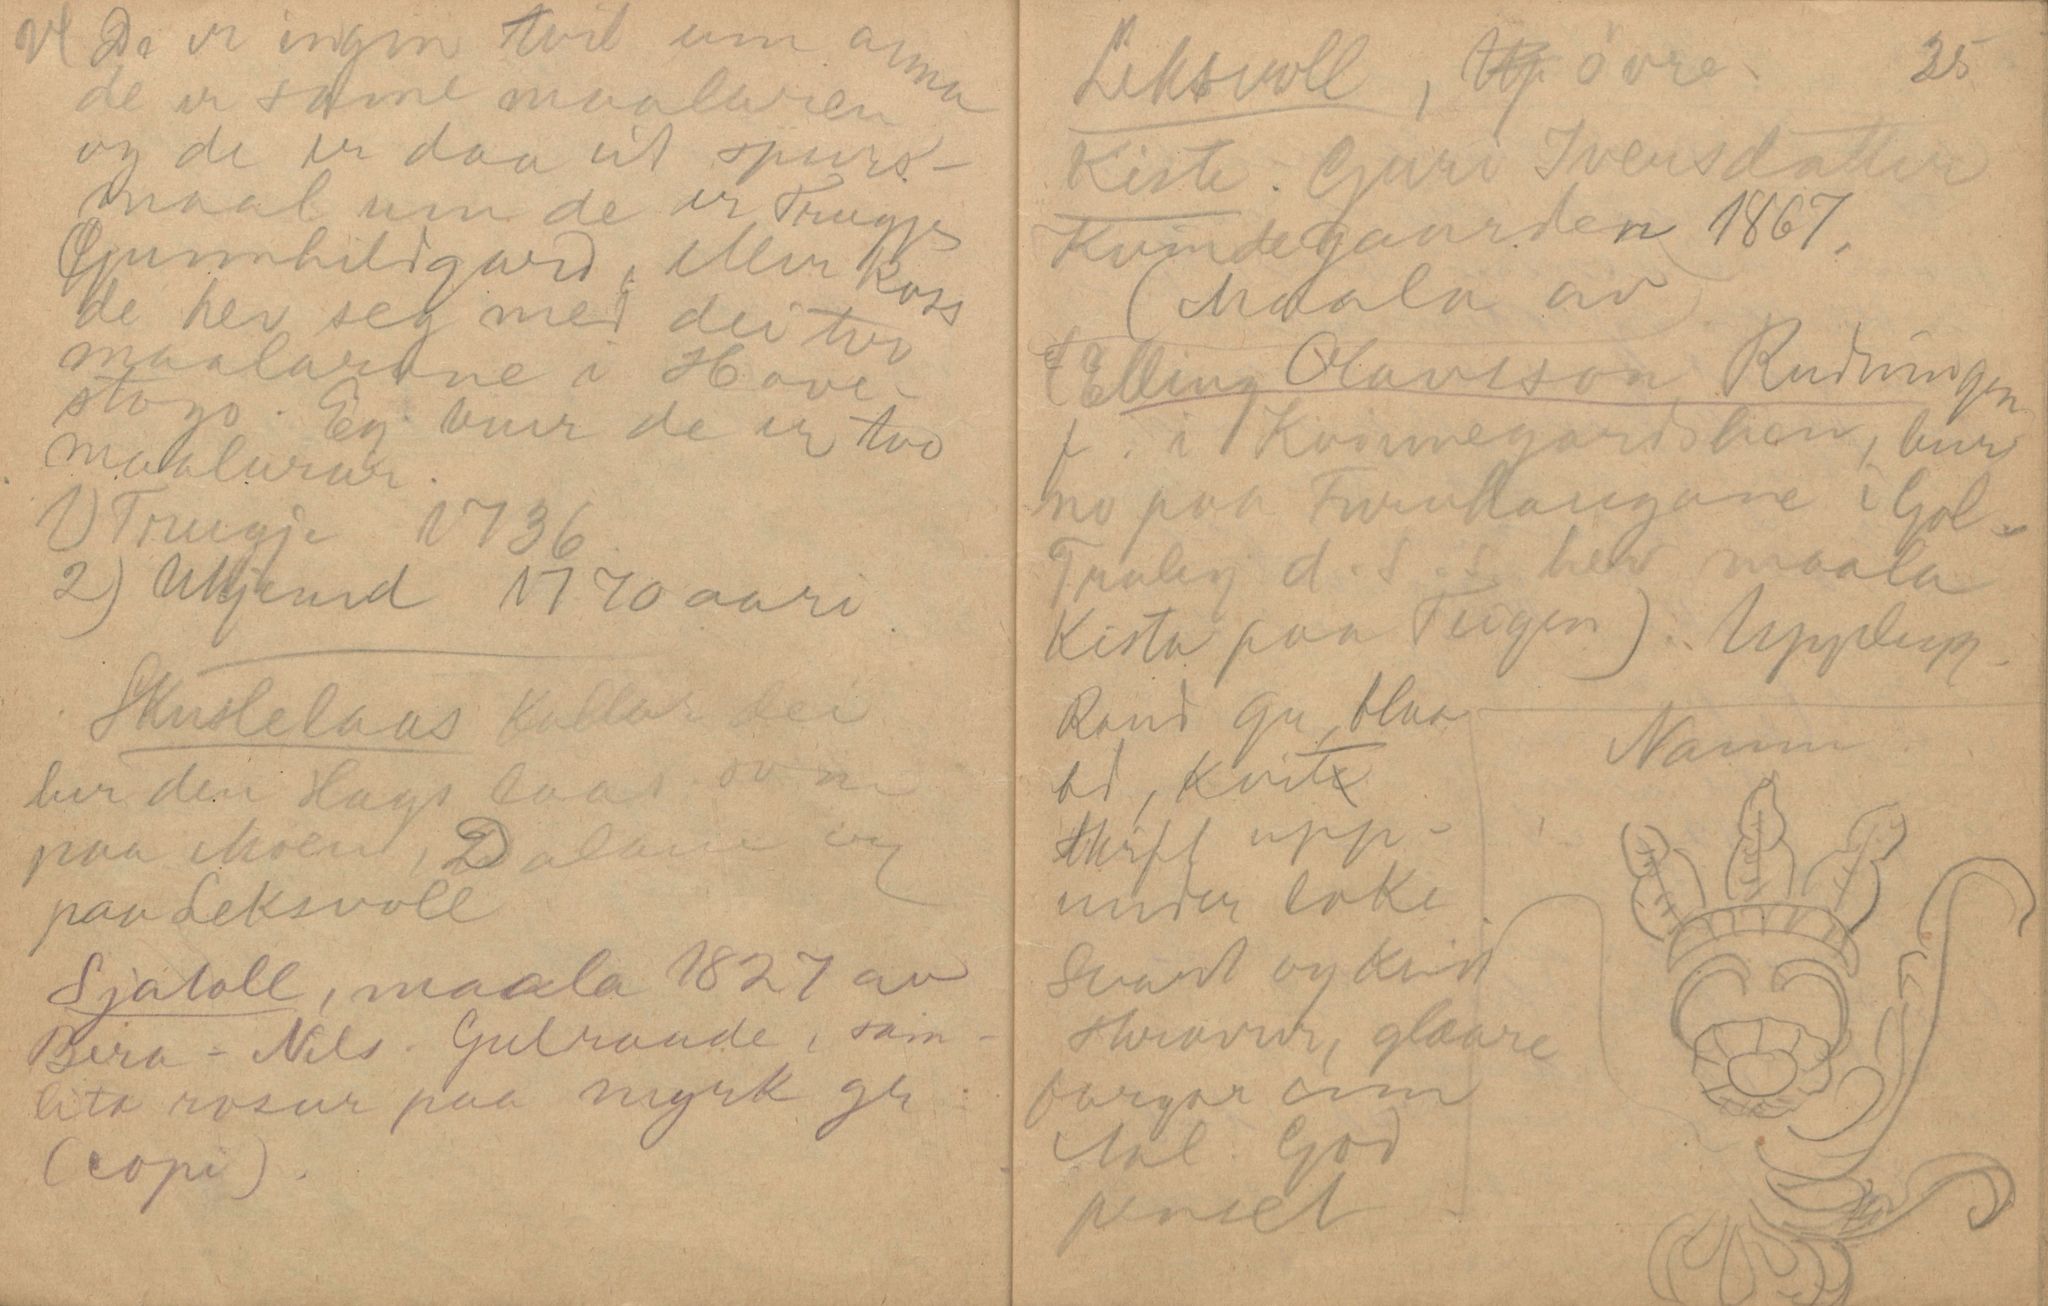 De er ingen tvil um anna
de er same maalaren
og de er daa eit spurs-
maal um de er Trugje
Gunnhildgard, eller koss
de hev seg med dei tvo
maalarane i Hove-
stogo. Eg veit de er tvo
maalarar.
1) Trugje 1736
2) Ukjend 1770 aari
Skuslelaas kallar dei
her den slags laas som
paa Moen, Dalane og
paa Leksvoll
Sjatoll, maala 1827 av
Bera-Nils. Gulraude, sam-
lita rosur paa myrk gr
(copi).
25
Leksvoll, övre
Kiste. Guri Iversdatter
Kvindegaarden 1867.
(Maala av
Elling Olavsson Rudningen
f. i Kvinnegardslien, bur
no paa Furuhaugane i Gol.
Traleg d.s.s. hev maala
Kista paa Teigen). Upplyp
Rand gu, blaa
bd, kvit
skrift upp-
under loke
Svart og kvit
skraver, glaare
fargar enn
Aal. God
pensel
Namn